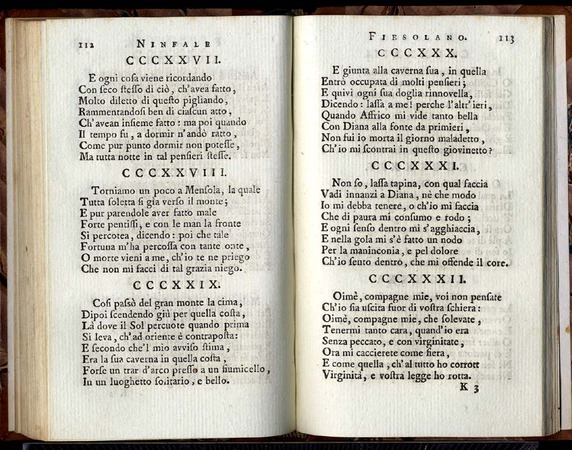 112 NINFALE
CCCXXVII.
E ogni cosa viene ricordando
Con seco stesso di ciò, ch'avea fatto,
Molto diletto di questo pigliando,
Rammentandosi ben di ciascun atto,
Ch'avean insieme fatto: ma poi quando
Il tempo fu, a dormir n'andò ratto,
Come pur punto dormir non potesse,
Ma tutta notte in tal pensieri stesse.
CCCXXVIII.
Torniamo un poco a Mensola, la quale
Tutta soletta si gia verso il monte;
E pur parendole aver fatto male
Forte pentissi, e con le man la fronte
Si percotea, dicendo: poi che tale
Fortuna m'ha percossa con tante onte,
O morte vieni a me, ch'io te ne priego
Che non mi facci di tal grazia niego.
CCCXXIX.
Così passò del gran monte la cima,
Dipoi scendendo giù per quella costa,
Là dove il Sol percuote quando prima
Si leva, ch'ad oriente è contraposta:
E secondo che'l mio avviso stima,
Era la sua caverna in quella costa,
Forse un trar d'arco presso a un fiumicello,
In un luoghetto solitario, e bello.
FIESOLANO. 113
CCCXXX.
E giunta alla caverna sua, in quella
Entrò occupata di molti pensieri;
E quivi ogni sua doglia rinnovella,
Dicendo: lassa a me! perche l'altr'ieri,
Quando Affrico mi vide tanto bella
Con Diana alla fonte da primieri,
Non fui io morta il giorno maladetto,
Ch'io mi scontrai in questo giovinetto?
CCCXXXI.
Non so, lassa tapina, con qual faccia
Vadi innanzi a Diana, nè che modo
Io mi debba tenere, o ch'io mi faccia
Che di paura mi consumo e rodo;
E ogni senso dentro mi s'agghiaccia,
E nella gola mi s'è fatto un nodo
Per la maninconia, e pel dolore
Ch'io sento dentro, che mi offende il core.
CCCXXXII.
Oimè, compagne mie, voi non pensate
Ch'io sia uscita fuor di vostra schiera:
Oimè, compagne mie, che solevate,
Tenermi tanto cara, quand'io era
Senza peccato, e con virginitate,
Ora mi caccierete come fiera,
E come quella, ch'al tutto ho corrott
Virginità, e vostra legge ho rotta.
K 3